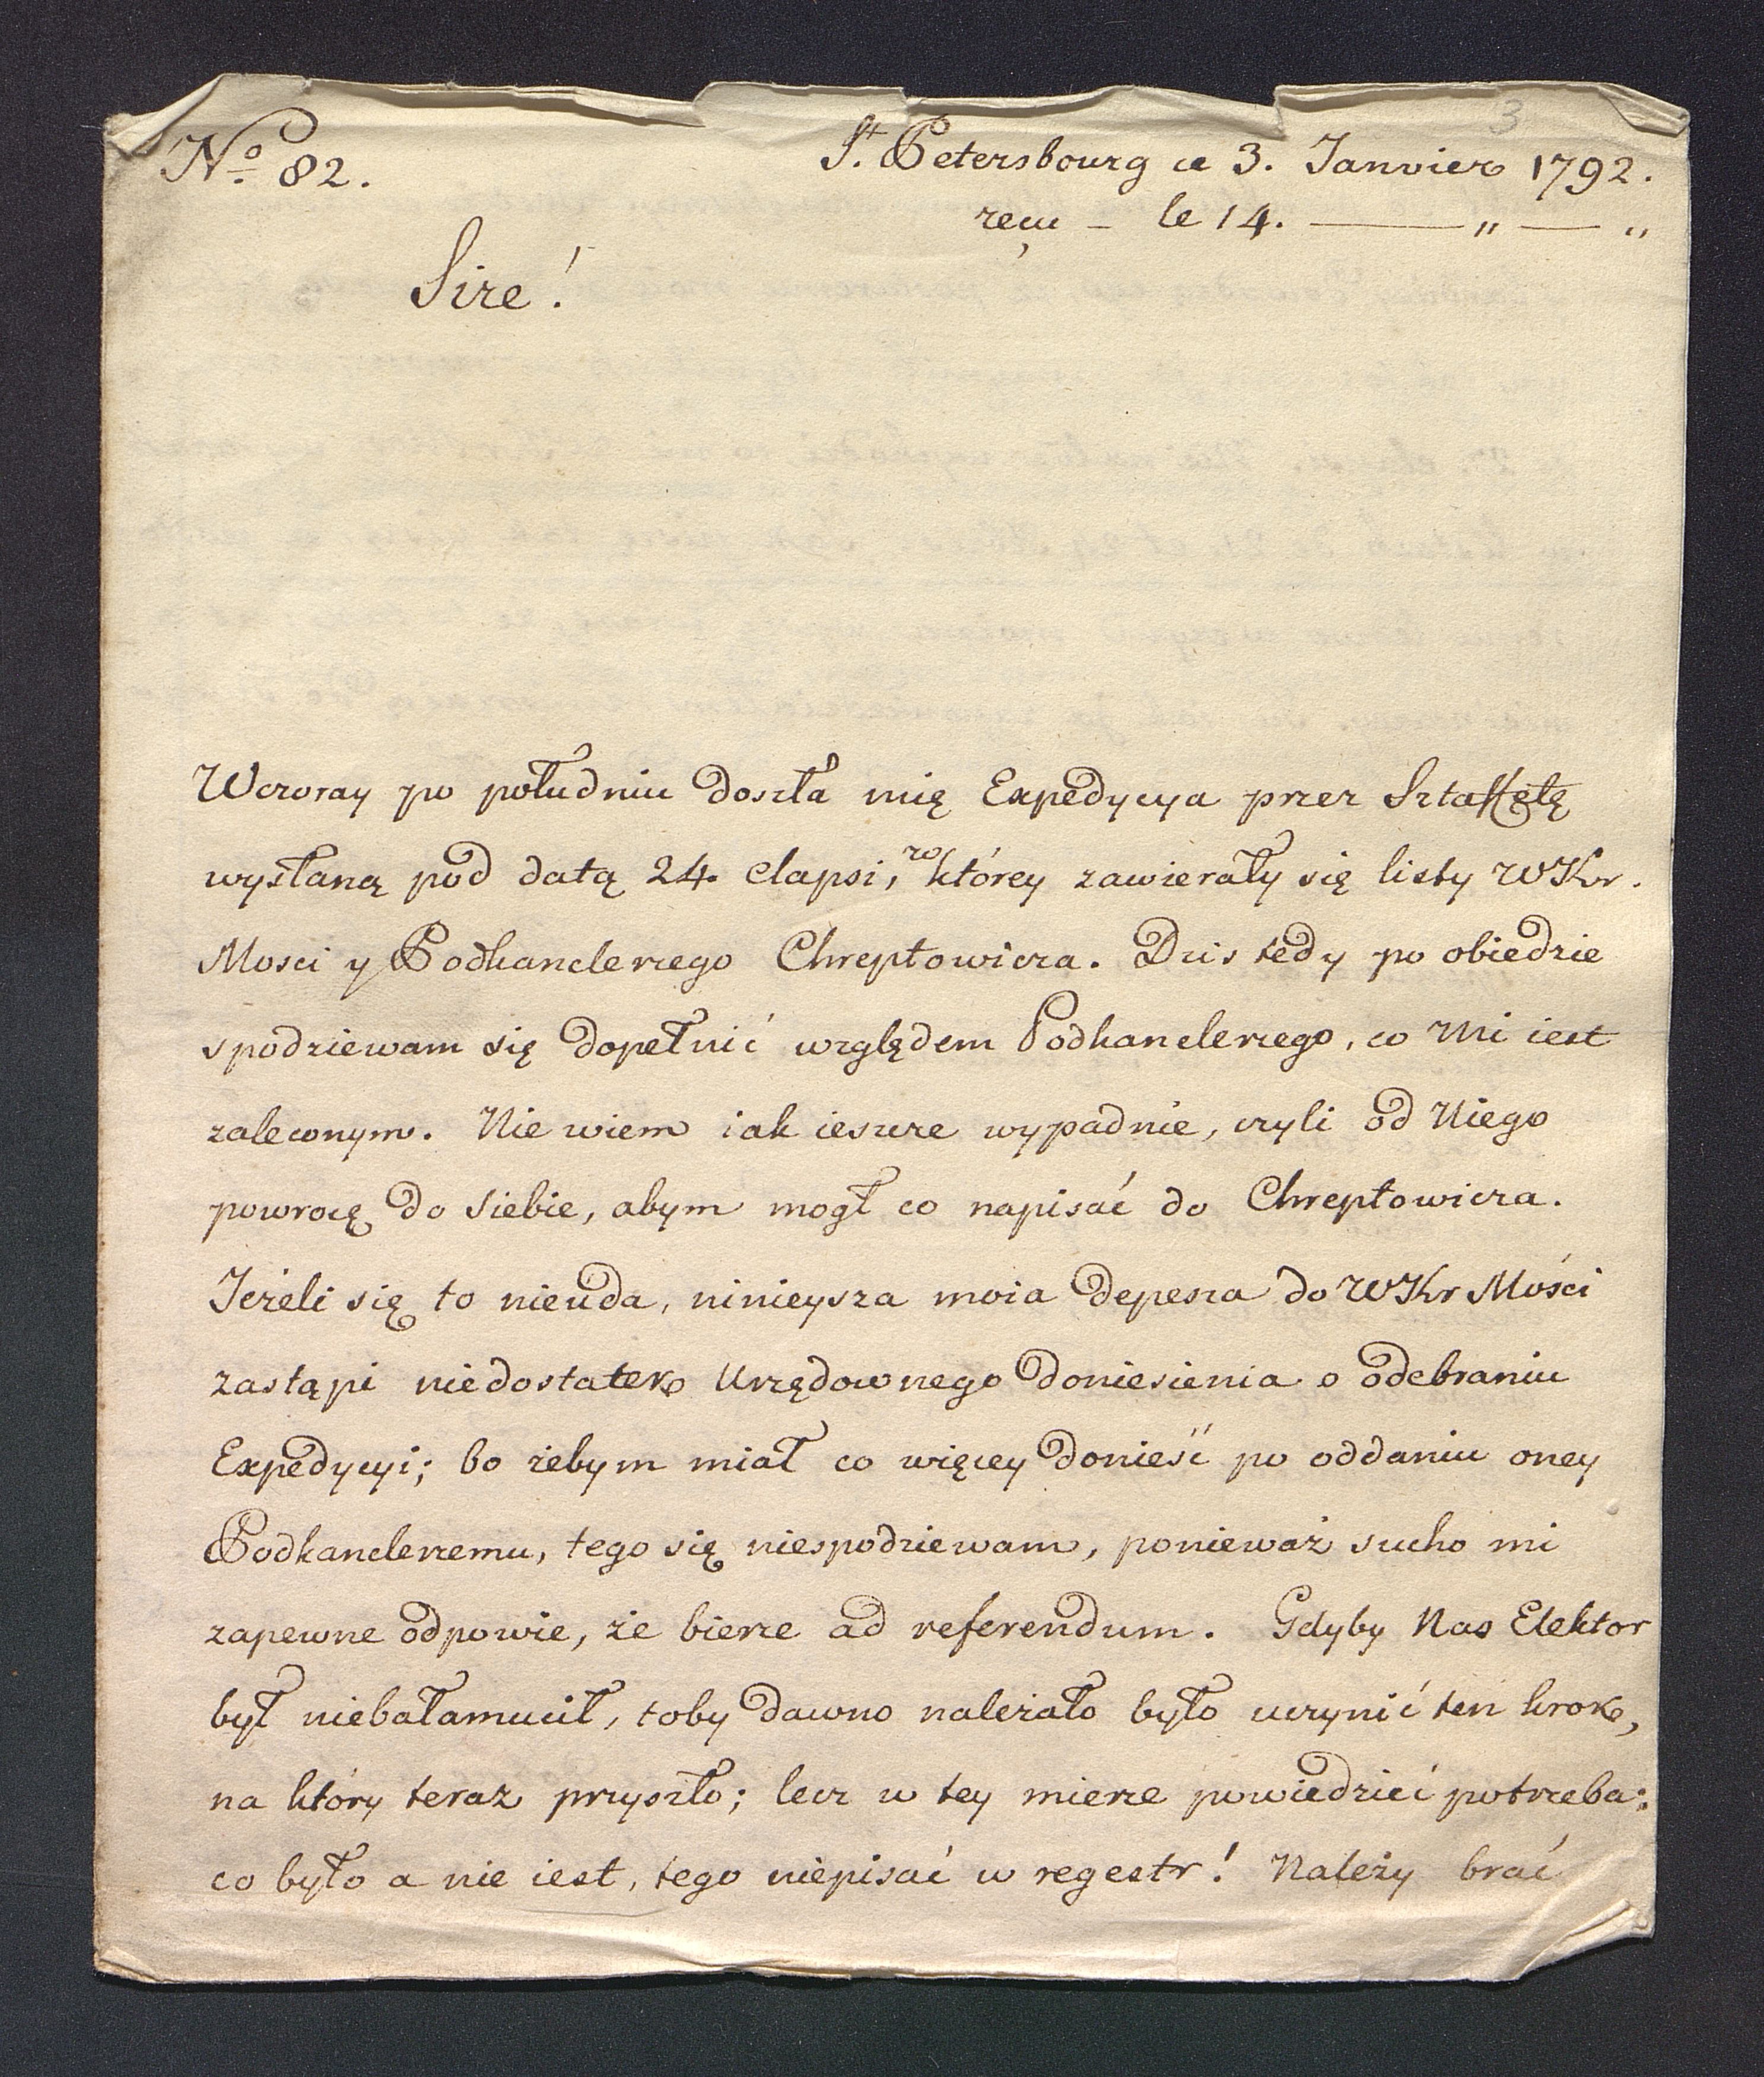 3
No 82.
St. Petersbourg ce 3. Janvier 1792.
reçu - le 14. — " — "
Sire!
Wczoray po południu doszła mię Expedycya przez Sztaffetę
wysłaną pod datą 24. elapsi, w którey zawierały się listy WKr.
Mosci y Podkanclerzego Chreptowicza. Dzis tedy po obiedzie
spodziewam się dopełnić względem Podkanclerzego, co mi iest
zaleconym. Nie wiem iak ieszcze wypadnie, czyli od Niego
powrocę do siebie, abym mogł co napisać do Chreptowicza.
Jeżeli się to nieuda, ninieysza moia depesza do WKr Mości
zastąpi niedostatek Urzędownego doniesienia o odebraniu
Expedycyi; bo żebym miał co więcey donieść po oddaniu oney
Podkanclerzemu, tego się niespodziewam, ponieważ sucho mi
zapewne odpowie, że bierze ad referendum. Gdyby Nas Elektor
był niebałamucił, toby dawno należało było uczynić ten krok,
na który teraz przyszło; lecz w tey mierze powiedzieć potrzeba:
co było a nie iest, tego niepisać w regestr! Należy brać